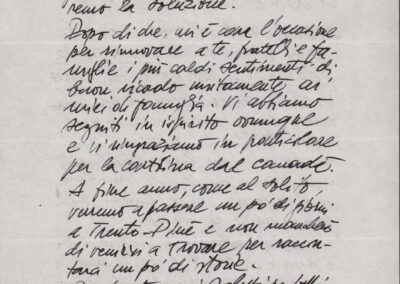 remo la soluzione.
Dopo di che, mi è cara l'occasione
per rinnovare a te, fratelli e fa-
miglie i più caldi sentimenti di
buon ricordo unitamente ai
miei di famiglia. Vi abbiamo
seguiti in ispirito comunque
e vi ringraziamo in particolare
per la cartolina dal Canadà.
A fine anno, come al solito,
verremo a passare un pò di giorni
a Trento - Pinè e non mancherò
di venirvi a trovare per raccon-
tarci un pò di storie.